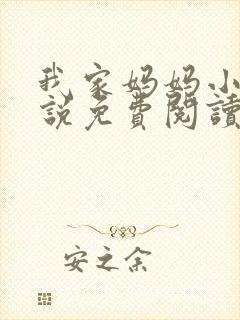 我家妈妈小
说免費閱讀
安之余